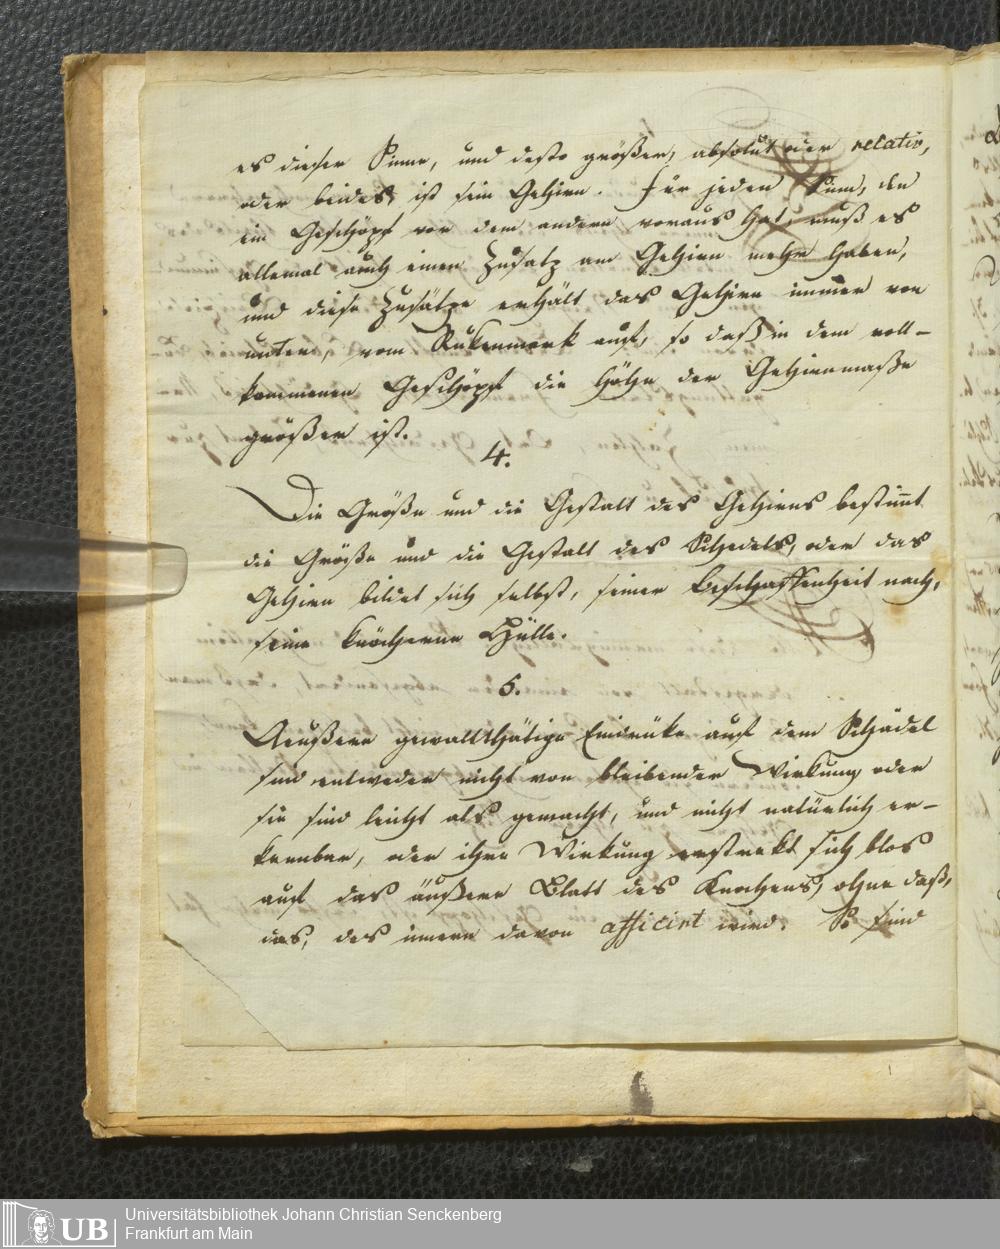 es dieser Sinne, und desto größer, absolut oder relativ,
oder beides ist sein Gehirn. Für jeden Sinn, den
ein Geschöpf vor dem andern voraus hat, muß es
allemal auch einen Zusatz am Gehirn mehr haben,
und diese Zusätze erhält das Gehirn immer von
unten, vom Rükenmark auf, so daß in dem voll-
kommenen Geschöpf die Höhe der Gehirnmaße
größer ist.
4.
Die Größe und die Gestalt des Gehirns bestimt
die Größe und die Gestalt des Schedels, oder das
Gehirn bildet sich selbst, seiner Beschaffenheit nach,
seine knöcherne Hülle.
5.
Aeußere gewaltthätige Eindrüke auf dem Schädel
sind entweder nicht von bleibender Wirkung oder
sie sind leicht als gemacht, und nicht natürlich er-
kennbar, oder ihre Wirkung erstrekt sich blos
auf das äußere Blatt des Knochens, ohne daß,
das, des innern davon afficirt wird. So sind
UB
Universitätsbibliothek Johann Christian Senckenberg
Frankfurt am Main